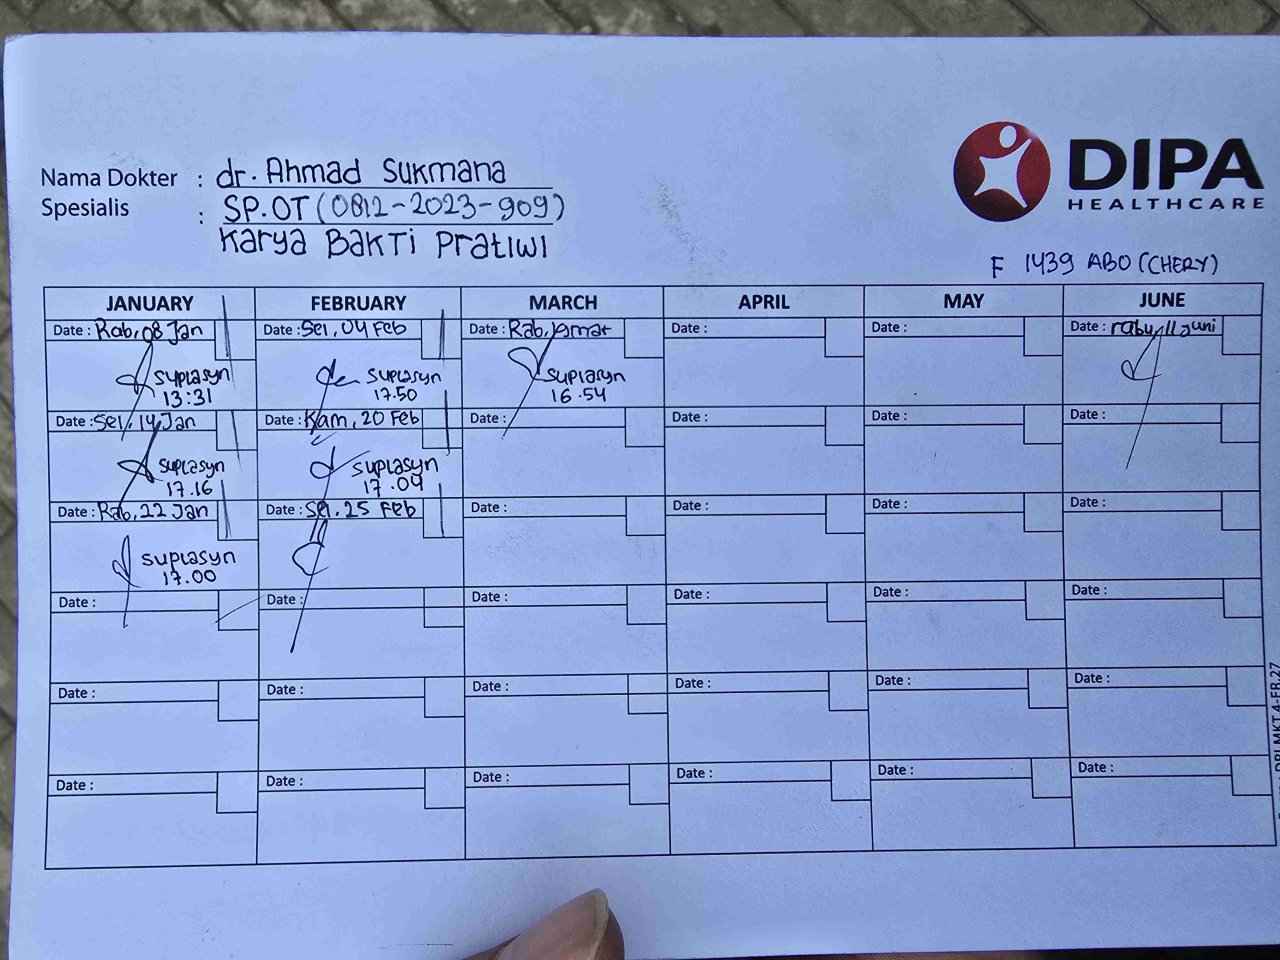 DIPA
HEALTHCARE
Nama Dokter : dr. Ahmad Sukmana
Spesialis : SP.OT (0812-2023-909)
Karya Bakti Pratiwi
F 1439 ABO (CHERY)
JANUARY FEBRUARY MARCH APRIL MAY JUNE
Date : Rab, 08 Jan Date : Sel, 04 Feb Date : Rab, Date : Date : Date : rabu, 11 Juni
suplasyn suplasyn suplasyn
13:31 17.50 16.54
Date : Sel, 14 Jan Date : Kam, 20 Feb Date : Date : Date : Date :
suplasyn suplasyn
17.16 17.09
Date : Rab, 22 Jan Date : Sel, 25 Feb Date : Date : Date : Date :
suplasyn
17.00
Date : Date : Date : Date : Date : Date :
Date : Date : Date : Date : Date : Date :
Date : Date : Date : Date : Date : Date :